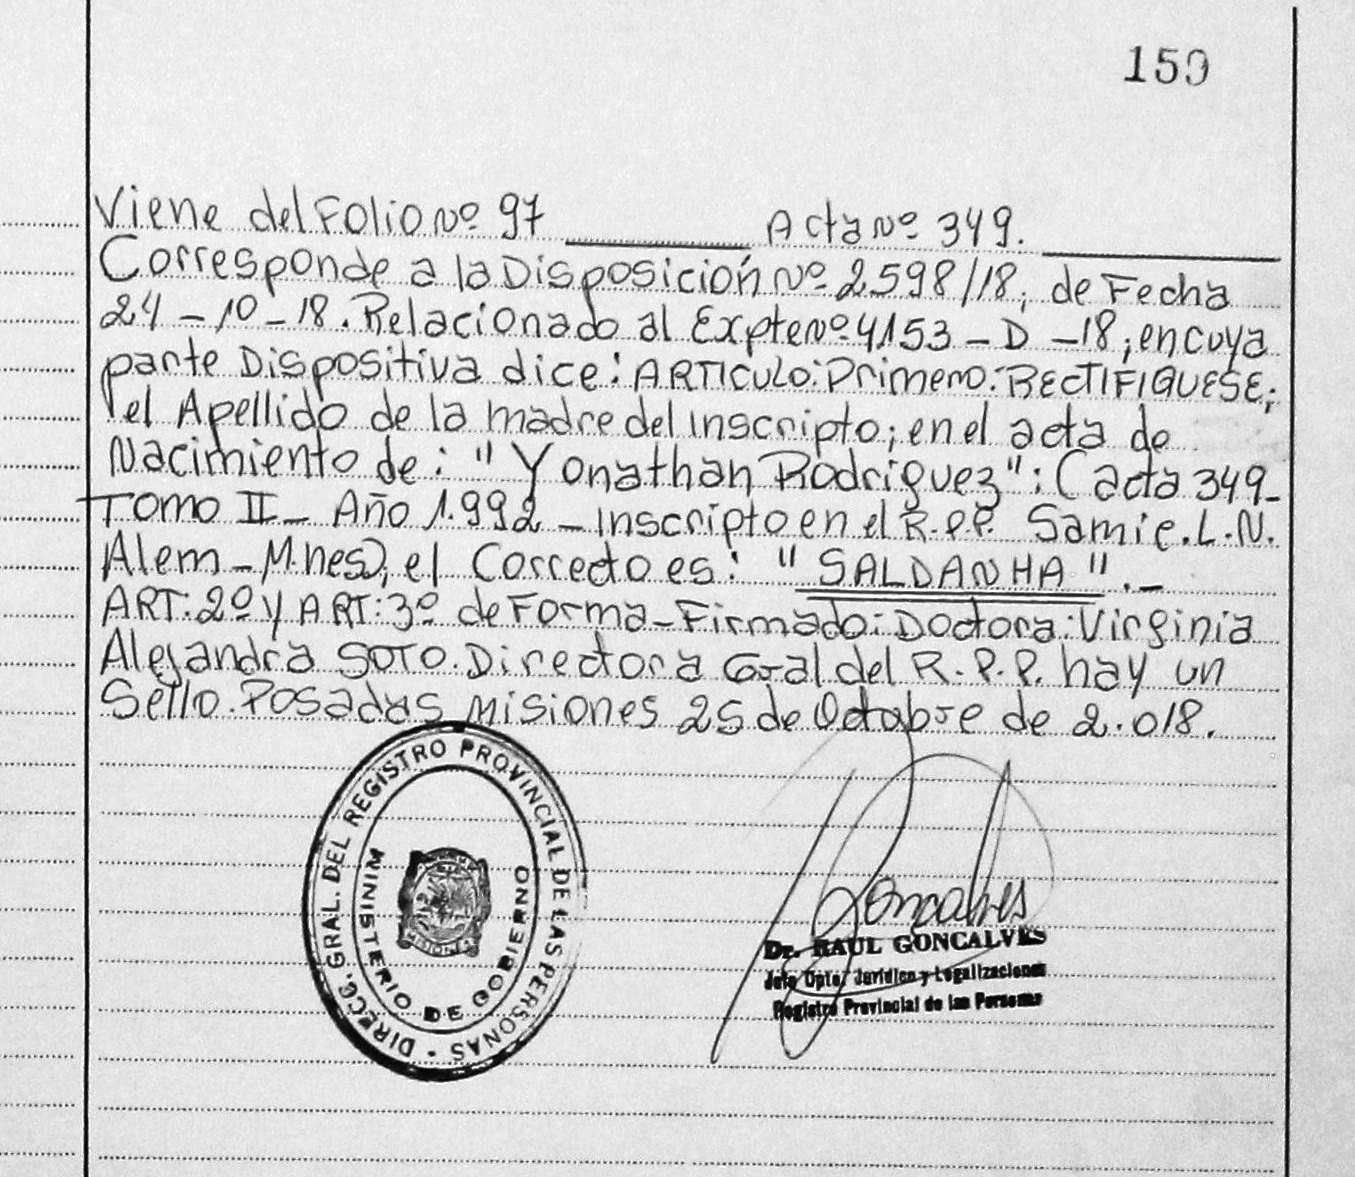 159
Viene del Folio Nº 97 Acta Nº 349.
Corresponde a la Disposición Nº 2598/18, de Fecha
24-10-18. Relacionado al Expte Nº 4153-D-18; en cuya
parte Dispositiva dice: ARTICULO: Primero: RECTIFIQUESE;
el Apellido de la madre del inscripto; en el acta de
Nacimiento de: "Yonathan Rodriguez": (acta 349-
TOMO II- Año 1.992 - inscripto en el R.P.P. Samic. L.N.
Alem-M.nes), el Correcto es: "SALDANHA".-
ART: 2º y ART: 3º de Forma-Firmado: Doctora: Virginia
Alejandra SOTO. Directora Gral del R.P.P. hay un
Sello. Posadas Misiones 25 de Octubre de 2.018.
DIRECC. GRAL. DEL REGISTRO PROVINCIAL DE LAS PERSONAS -
MINISTERIO DE GOBIERNO
MISIONES
Goncalves
Dr. RAUL GONCALVES
Jefe Dpto. Jurídico y Legalizaciones
Registro Provincial de las Personas